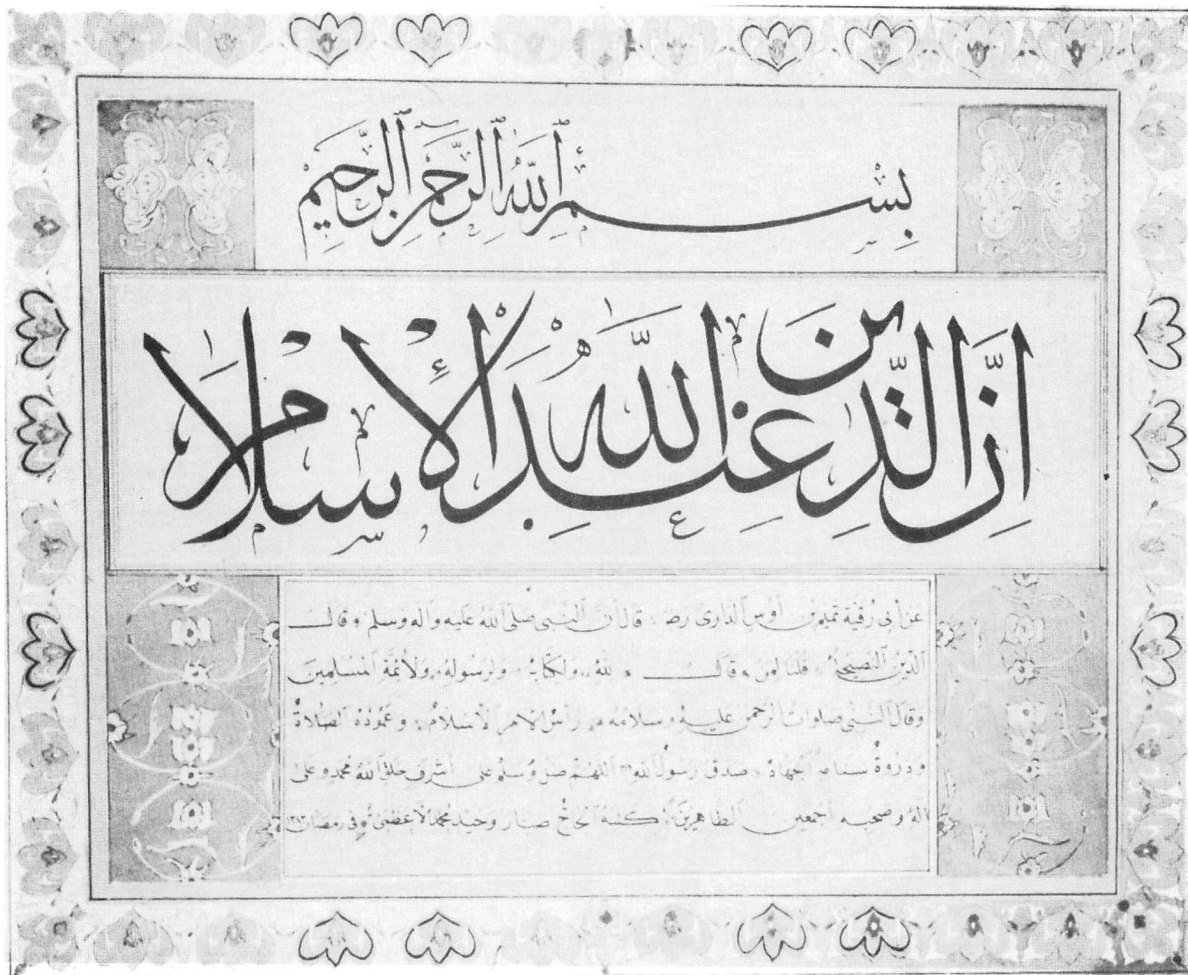 بِسْمِ ٱللَّهِ ٱلرَّحْمٰنِ ٱلرَّحِيمِ
إِنَّ الدِّينَ عِندَ اللَّهِ الْإِسْلَامُ
عن أبي رقية تميم بن أوس الداري رض قال أن النبي صلى الله عليه واله وسلم قال
الدين النصيحة قلنا لمن قال لله ولكتابه ولرسوله ولأئمة المسلمين
وقال النبي صلوات الرحمن عليه وسلامه رأس الامر الاسلام وعموده الصلاة
وذروة سنامه الجهاد صدق رسول الله اللهم صل وسلم على أشرف خلق الله محمد وعلى
اله وصحبه أجمعين الطاهرين كتبه الحاج صبار وحيد محمد الاعظمي في رمضان